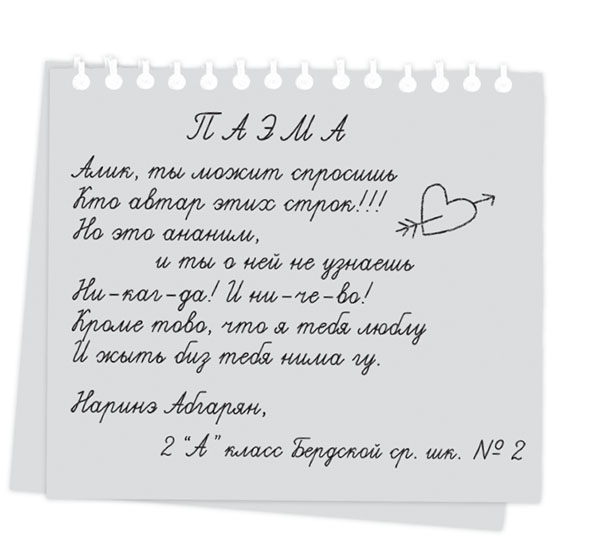 ПАЭМА
Алик, ты можит спросишь
Кто автар этих строк!!!
Но это ананим,
и ты о ней не узнаешь
Ни-каг-да! И ни-че-во!
Кроме тово, что я тебя люблу
И жыть биз тебя нима гу.
Наринэ Абгарян,
2 “А” класс Бердской ср. шк. № 2